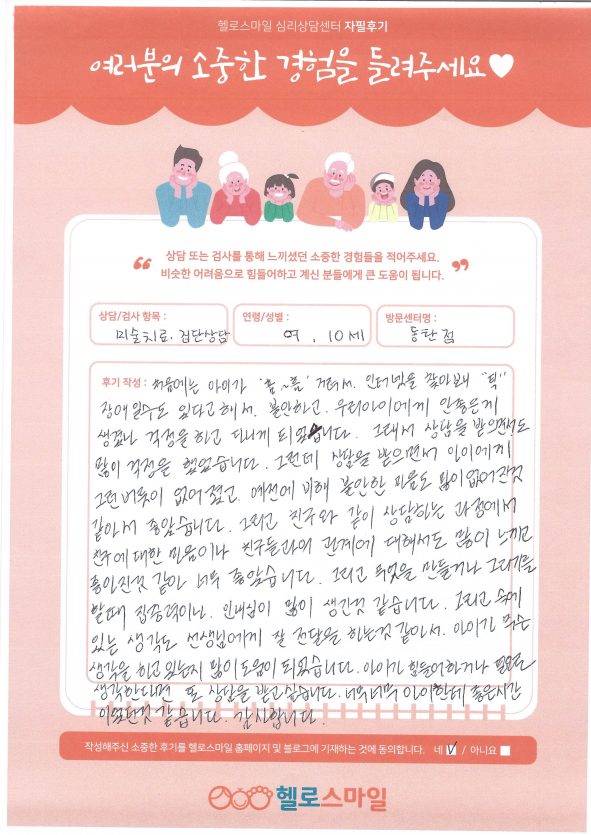 헬로스마일 심리상담센터 자필후기
여러분의 소중한 경험을 들려주세요
상담 또는 검사를 통해 느끼셨던 소중한 경험들을 적어주세요.
비슷한 어려움으로 힘들어하고 계신 분들에게 큰 도움이 됩니다.
상담/검사 항목 : 미술치료. 집단상담
연령/성별 : 여, 10세
방문센터명 : 동탄점
후기 작성 : 처음에는 아이가 "흠~흠" 거려서. 인터넷을 찾아보니 "틱"
장애일수도 있다고 해서. 불안하고. 우리아이에게 안좋은게
생겼나 걱정을 하고 다니게 되었습니다. 그래서 상담을 받으면서도
많이 걱정을 했었습니다. 그런데 상담을 받으면서 아이에게
그런버릇이 없어졌고 예전에 비해 불안한 마음도 많이 없어진것
같아서 좋았습니다. 그리고 친구와 같이 상담하는 과정에서
친구에 대한 믿음이나 친구들과의 관계에 대해서도 많이 느끼고
좋아진것 같아 너무 좋았습니다. 그리고 무엇을 만들거나 그리기를
할때 집중력이나. 인내심이 많이 생긴것 같습니다. 그리고 속에
있는 생각도 선생님에게 잘 전달을 하는것 같아서. 아이가 무슨
생각을 하고 있는지 많이 도움이 되었습니다. 아이가 힘들어하거나 필요로
생각한다면 또 상담을 받고 싶습니다. 너무너무 아이한테 좋은시간
이었던것 같습니다. 감사합니다.
작성해주신 소중한 후기를 헬로스마일 홈페이지 및 블로그에 기재하는 것에 동의합니다. 네 ✓ / 아니요
헬로스마일